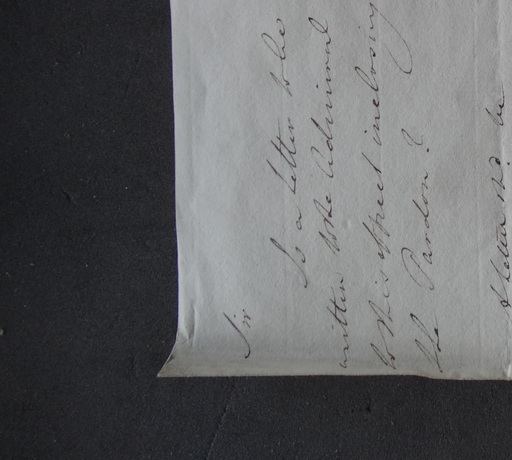 Sir
Is a letter to be
written to the Admiral
to this effect inclosing
the Pardon?
A letter shd. be